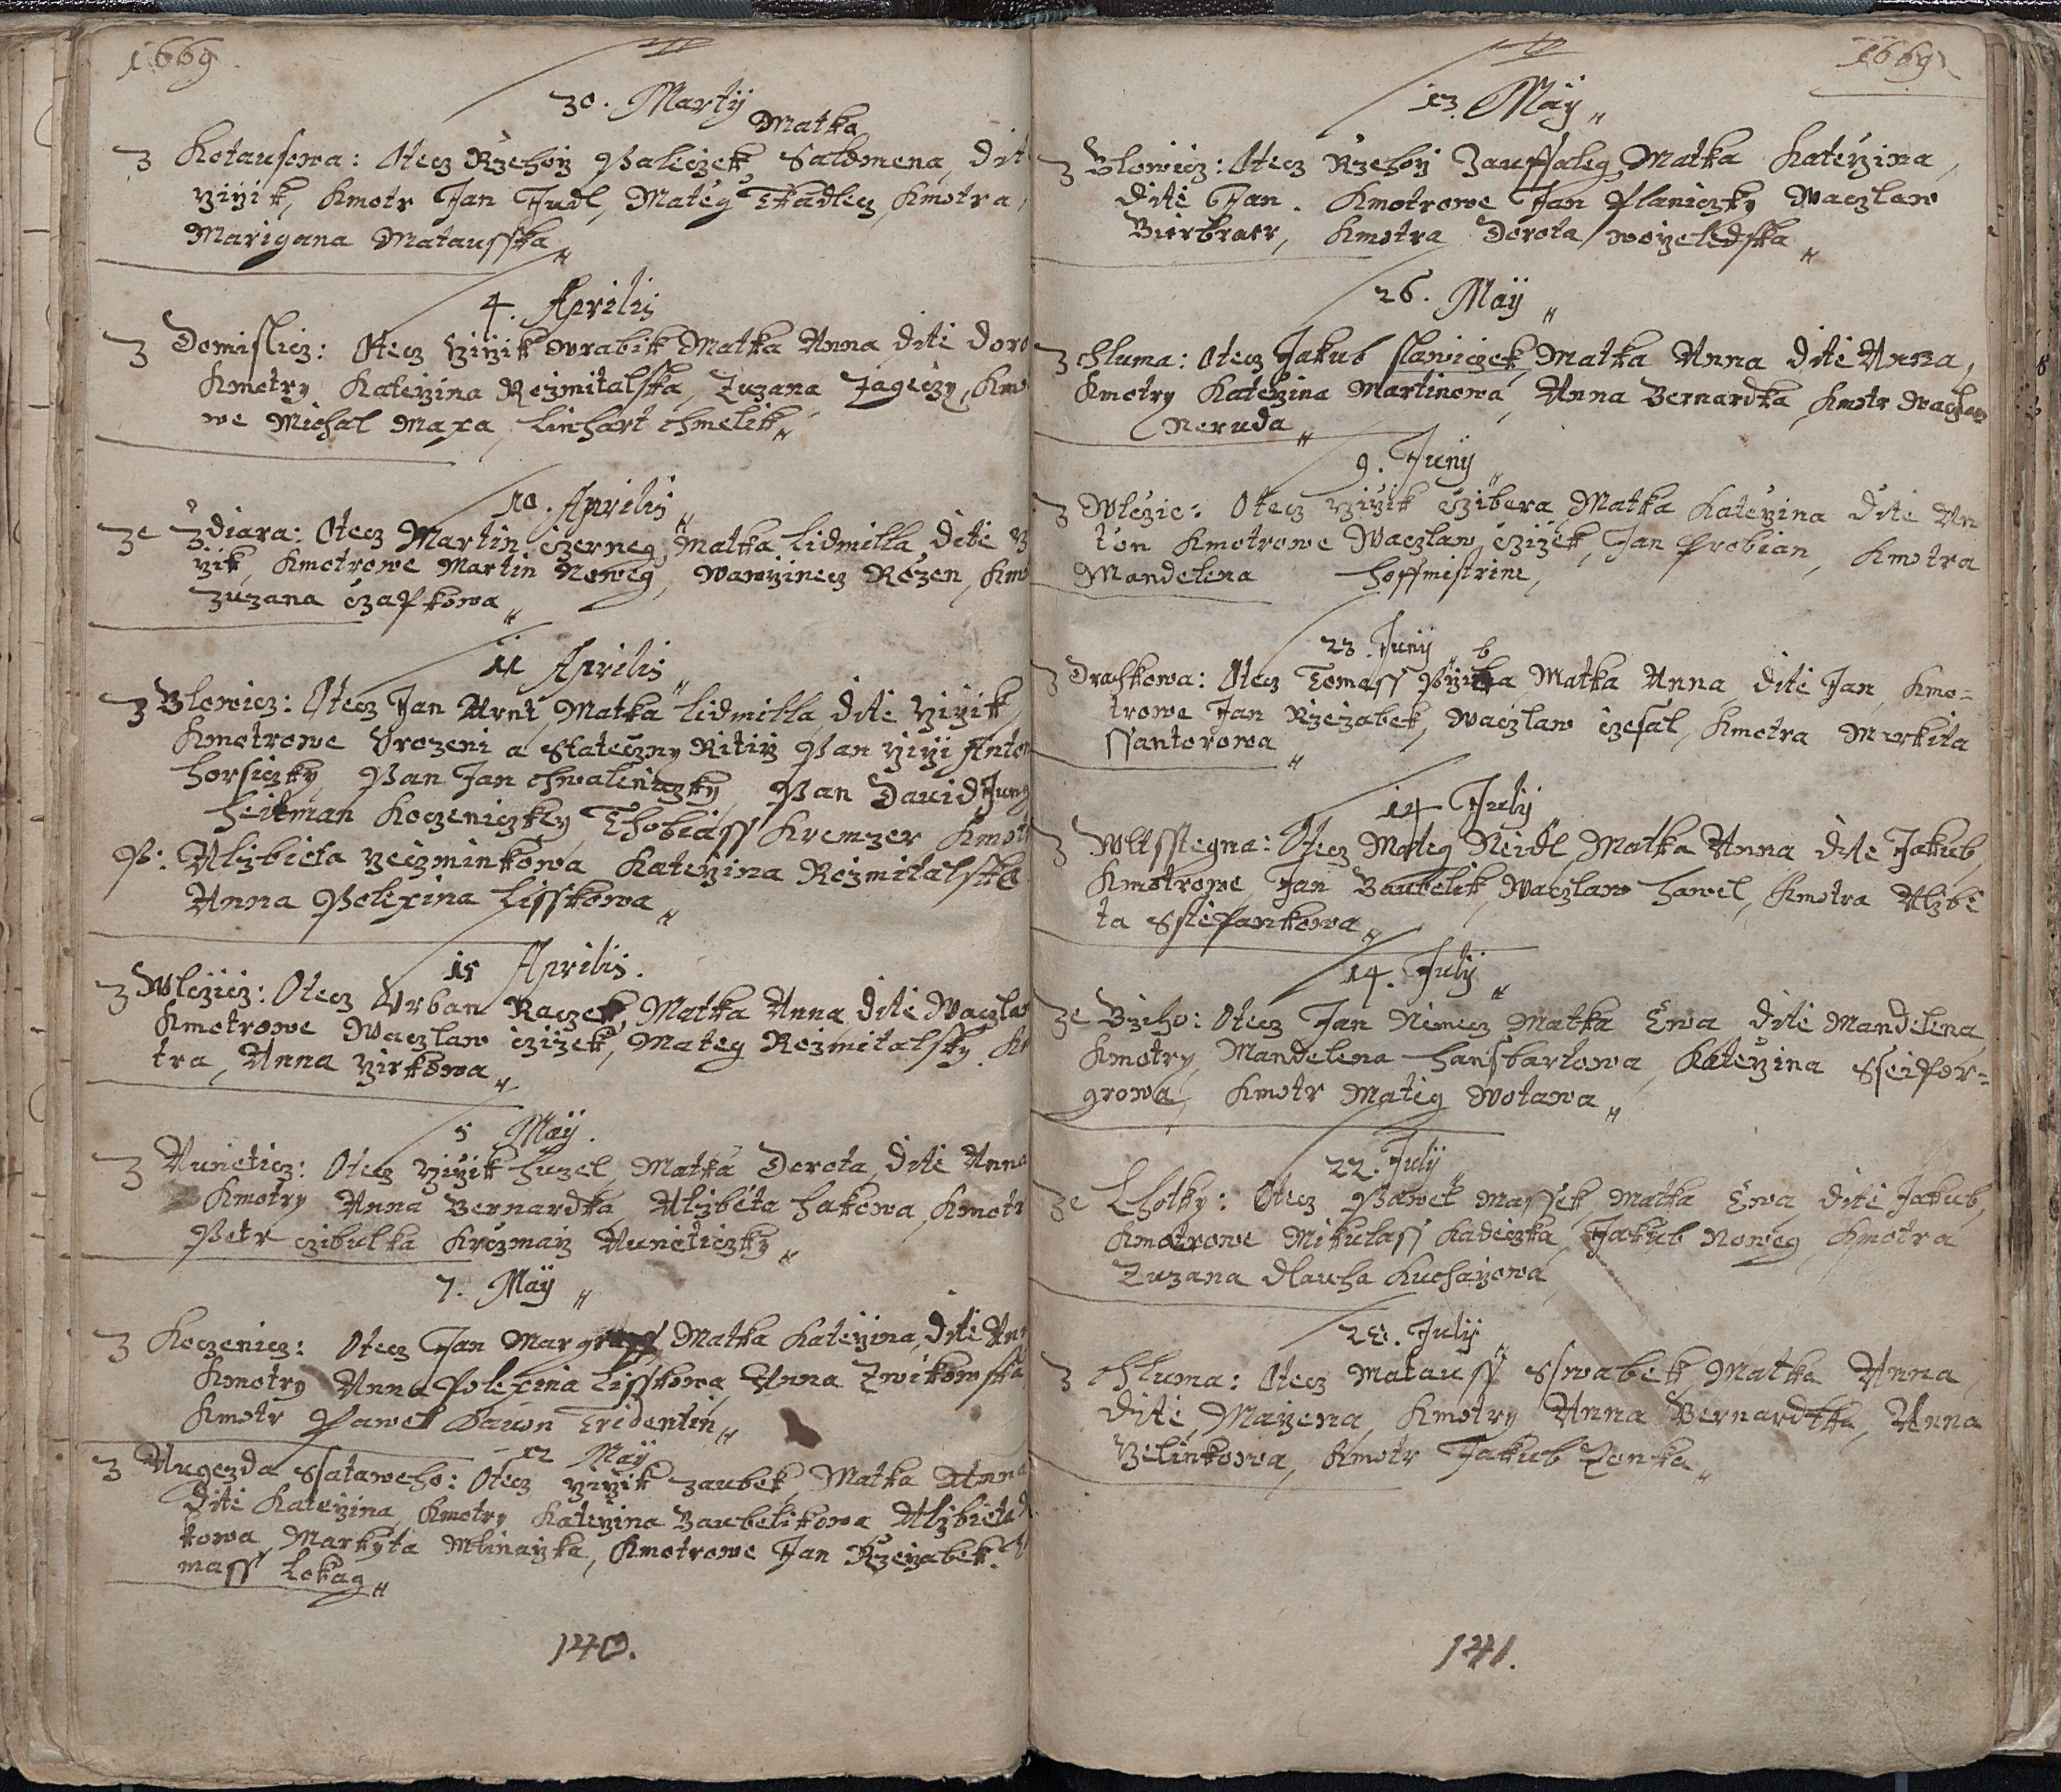 1669
30. Martij
Matka
Z Kotausowa: Otecz Rzehorz Paliczek, Saldmena, dit
Yirzik, Kmotr Jan Judl, Mateg Tkadlecz, Kmotra,
Marigana Matausska
4. Aprilis
Z Domislicz: Otecz Yirzik Wrabik Matka Anna dite doro
Kmotry Katerzina Rozmitalska, Zuzana Jageczy, Kmo
we Michal Maxa, Linhart Chmelik
10. Aprilis
Ze Zdiara: Otecz Martin Czerneg, Matka Lidmilla, Dite Y
rzik, Kmotrowe Martin Noweg, Wawrzinecz Rozen, Kmo
Zuzana Czapkowa
11 Aprilis
Z Blowicz: Otecz Jan Arnt, Matka Lidmilla, dite Yirzik
Kmotrowe Vrozeni a Stateczny Ritirz Pan Yirzi Anton
Horsiczky, Pan Jan Chwalenczky, Pan Dauid Jung
Heitman Koczeniczky, Thobiass Kremzer Kmot
P: Alzbieta Yeczminkowa Katerzina Rozmitalska
Anna Polexina Lisskowa
15 Aprilis.
Z Wlczicz: Otecz Vrban Raczek, Matka Anna, dite Waczlaw
Kmotrowe Waczlaw Czizek, Mateg Rozmitalsky. K
tra, Anna Yirkowa
5 Maij.
Z Auneticz: Otecz Yirzik Huzel, Matka Dorota, Dite Anna
Kmotry Anna Bernardka Alzbeta Hakowa, Kmotr
Petr Czibulka Krczmarz Auneticzky
7. Maij
Z Koczenicz: Otecz Jan Matka Katerzina, Dite An
Kmotry Anna Polexina Lisskowa, Anna Zwikowska
Kmotr Pawel Tridentin
12 Maij
Z Augezda Ssataweho: Otecz Yirzik Zaubek, Matka Anna
Dite Katerzina, Kmotry Katerzina Baubelikowa Alzbieta
kowa, Markyta Mlinarzka, Kmotrowe Jan Rzerzabek
mass Lokag
140.
1669
13. Maij
Z Blowicz: Otecz Rzehorz Zaussaleg Matka Katerzina,
Dite Jan. Kmotrowe Jan Planiczky Waczlaw
Bierbraer, Kmotra Dorota
26. Maij
Z Chluma: Otecz Jakub Slawiczek, Matka Anna dite Anna,
Kmotry Katerzina Martinowa, Anna Bernardka, Kmotr Waczlaw
Neruda
9. Junij
Z Wlczic: Otecz Yirzik Czibera, Matka Katerzina Dite An
ton Kmotrowe Waczlaw Czizek, Jan Probian, Kmotra
Mandelena Hoffmistrine,
23 Junij
b
Z Drachkowa: Otecz Tomass Matka Anna, dite Jan, Kmo-
trowe Jan Rzerzabek, Waczlaw Czesal, Kmotra Markita
Ssantorowa
14 Julij
Z Wltsstegna: Otecz Mateg Neidl Matka Anna dite Jakub,
Kmotrowe Jan Baubelik, Waczlaw Hawel, Kmotra Alzbe
ta Sstepankowa
14. Julij
Ze Bziho: Otecz Jan Nemecz Matka Ewa dite Mandelena
Kmotry Mandelena Hansbartowa, Katerzina Sseipor-
growa, Kmotr Mateg Wotawa
22. Julij
Ze Lhotky: Otecz Pawel Massek, Matka Ewa, dite Jakub,
Kmotrowe Mikulass Kadeczka, Jakub Noweg, Kmotra
Zuzana Dlauha Kucharzowa
28. Julij
Z Chluma: Otecz Matauss Sswabek Matka Anna,
dite, Marzena, Kmotry Anna Bernardtka, Anna
Belinkowa, Kmotr Jakub Zonka
141.